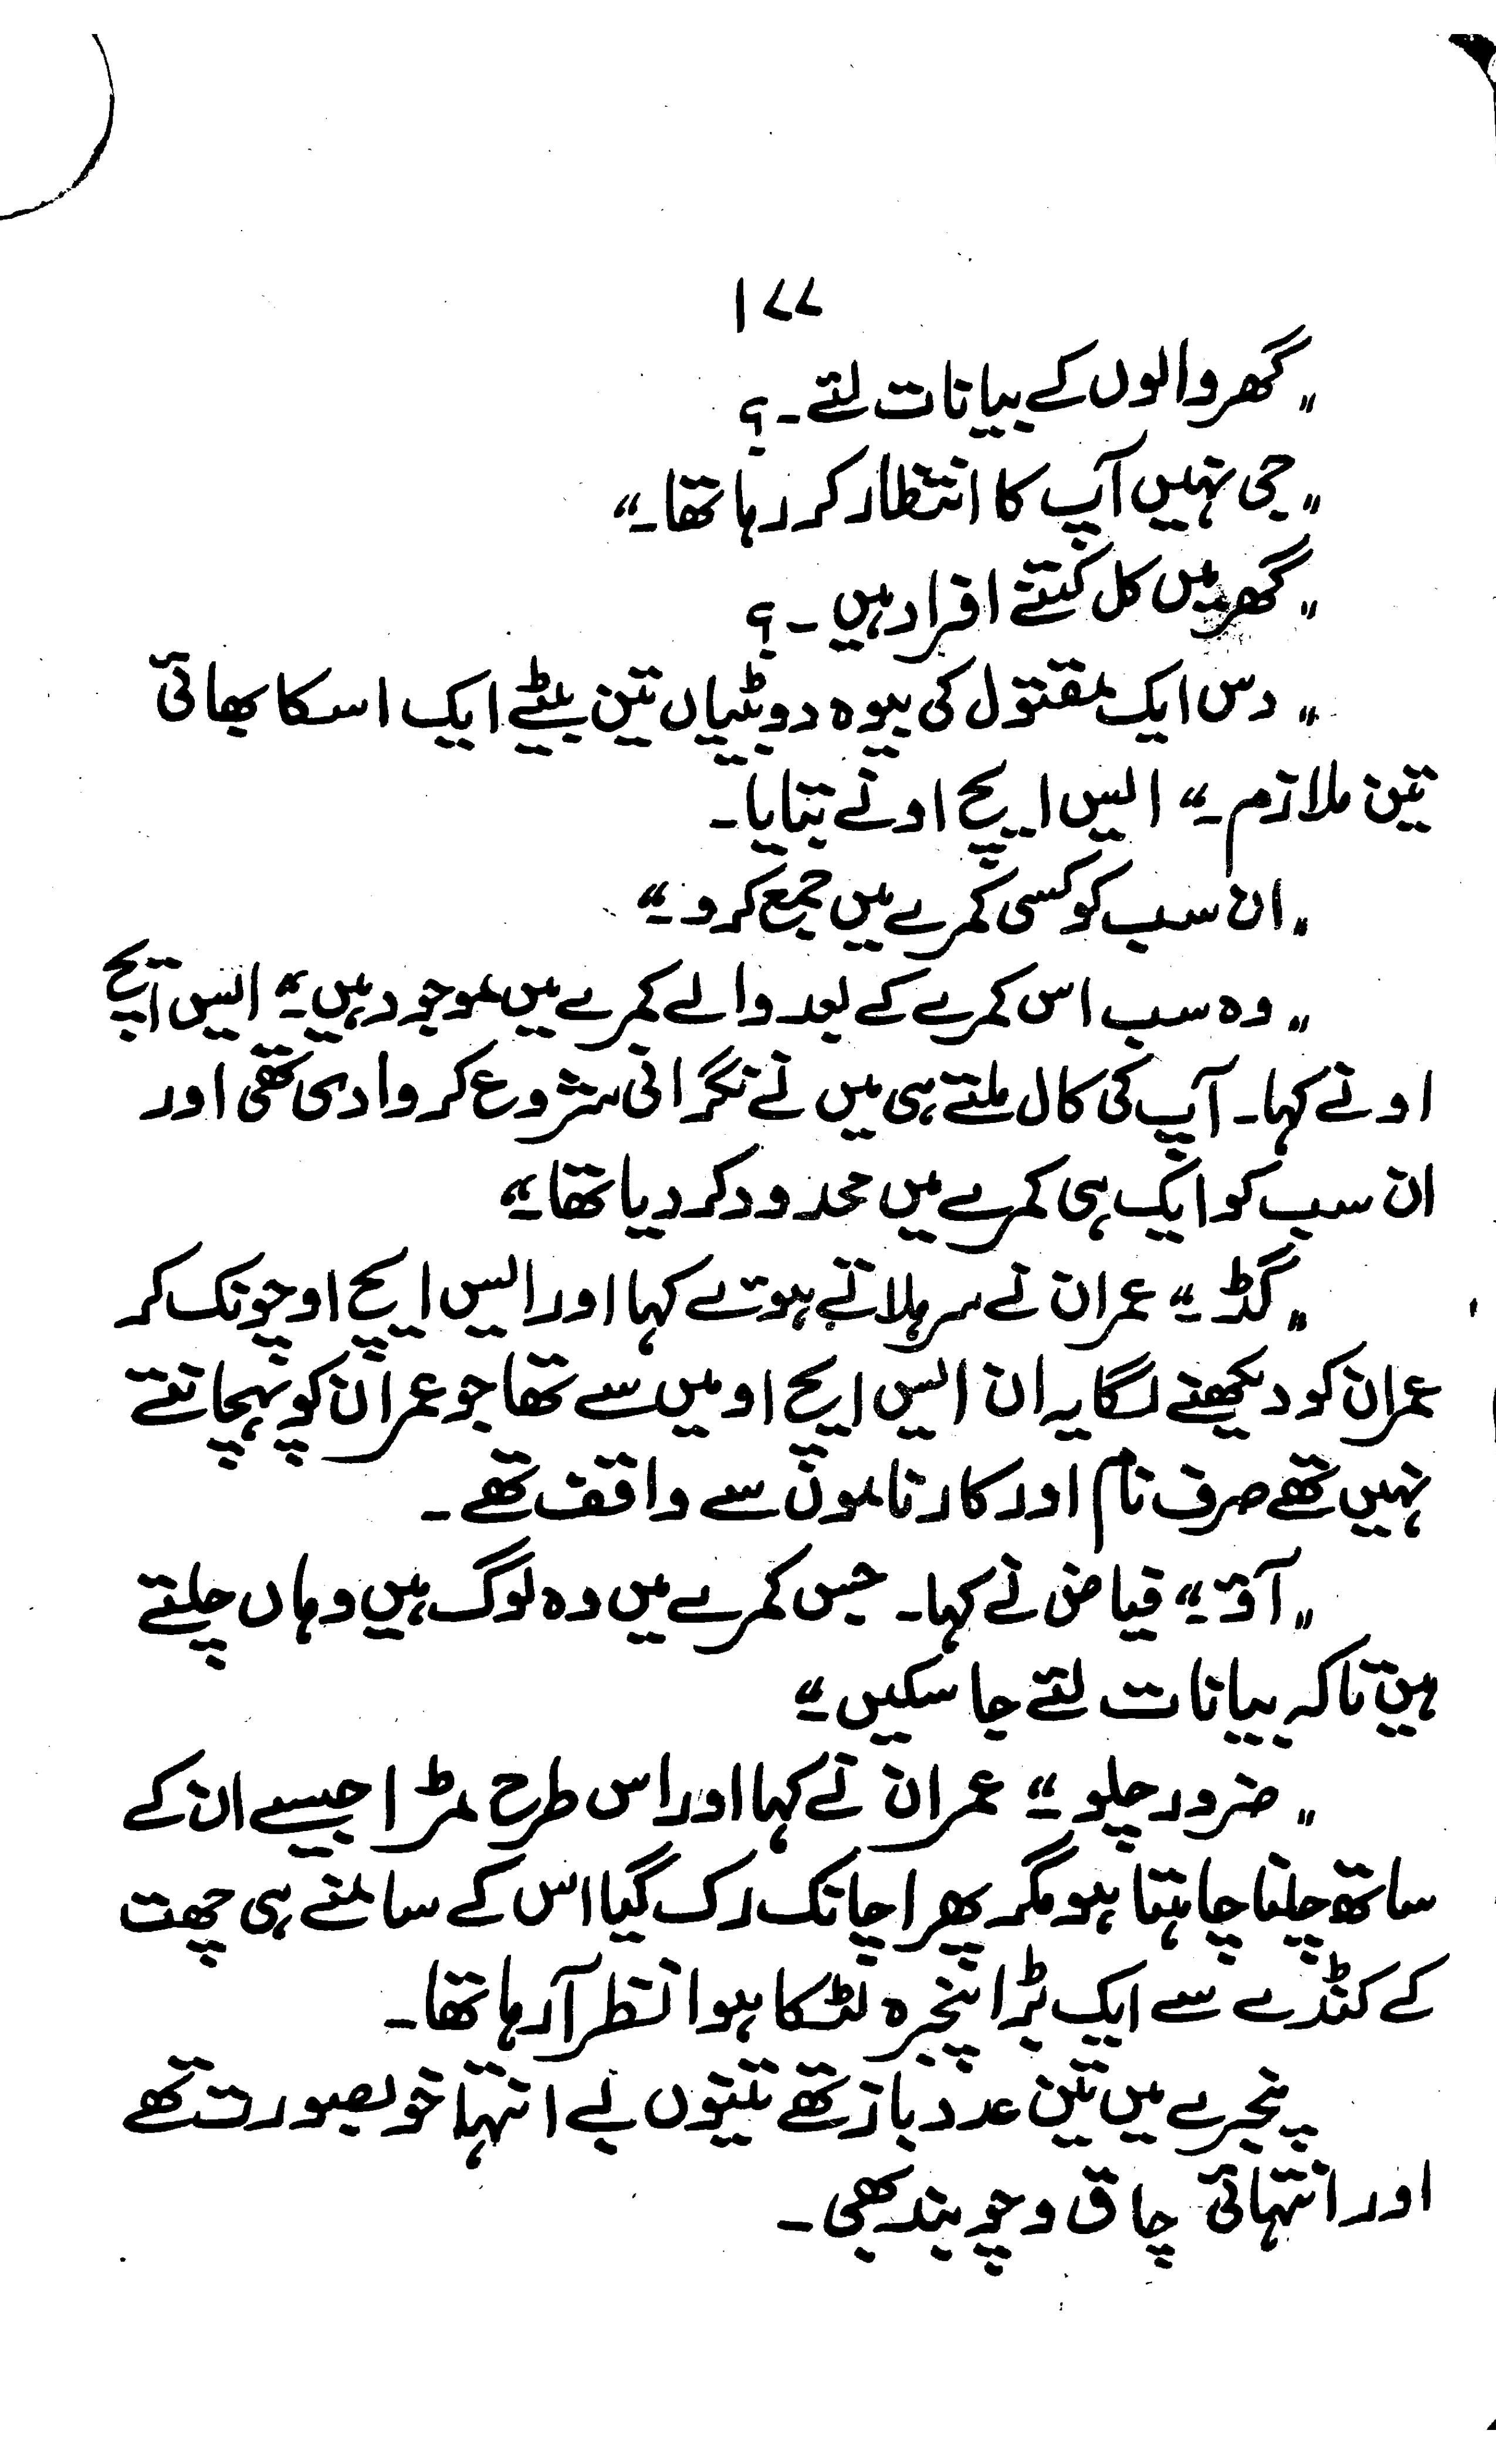 ۱۷۷
"گھر والوں کے بیانات لئے۔؟
"جی نہیں آپ کا انتظار کر رہا تھا۔"
"گھر میں کل کتنے افراد ہیں۔؟
"دس ایک مقتول کی بیوہ دو بٹیاں تین بیٹے ایک اسکا بھائی
تین ملازم۔" ایس ایچ او نے بتایا۔
"ان سب کو کسی کمرے میں جمع کرو۔"
"وہ سب اس کمرے کے بعد والے کمرے میں موجود ہیں۔" ایس ایچ
او نے کہا۔ آپ کی کال ملتے ہی میں نے نگرانی شروع کروا دی تھی اور
ان سب کو ایک ہی کمرے میں محدود کر دیا تھا۔"
"گڈ۔" عمران نے سر ہلاتے ہوئے کہا اور ایس ایچ او چونک کر
عمران کو دیکھنے لگا یہ ان ایس ایچ او میں سے تھا جو عمران کو پہچانتے
نہیں تھے صرف نام اور کارناموں سے واقف تھے۔
"آؤ۔" فیاض نے کہا۔ جس کمرے میں وہ لوگ ہیں وہاں چلتے
ہیں تاکہ بیانات لئے جا سکیں۔"
"ضرور چلو۔" عمران نے کہا اور اس طرح مڑا جیسے ان کے
ساتھ چلنا چاہتا ہو مگر پھر اچانک رک گیا اس کے سامنے ہی چھت
کے کنڈے سے ایک بڑا پنجرہ لٹکا ہوا نظر آ رہا تھا۔
پنجرے میں تین عدد باز تھے تینوں بے انتہا خوبصورت تھے
اور انتہائی چاق و چوبند بھی۔